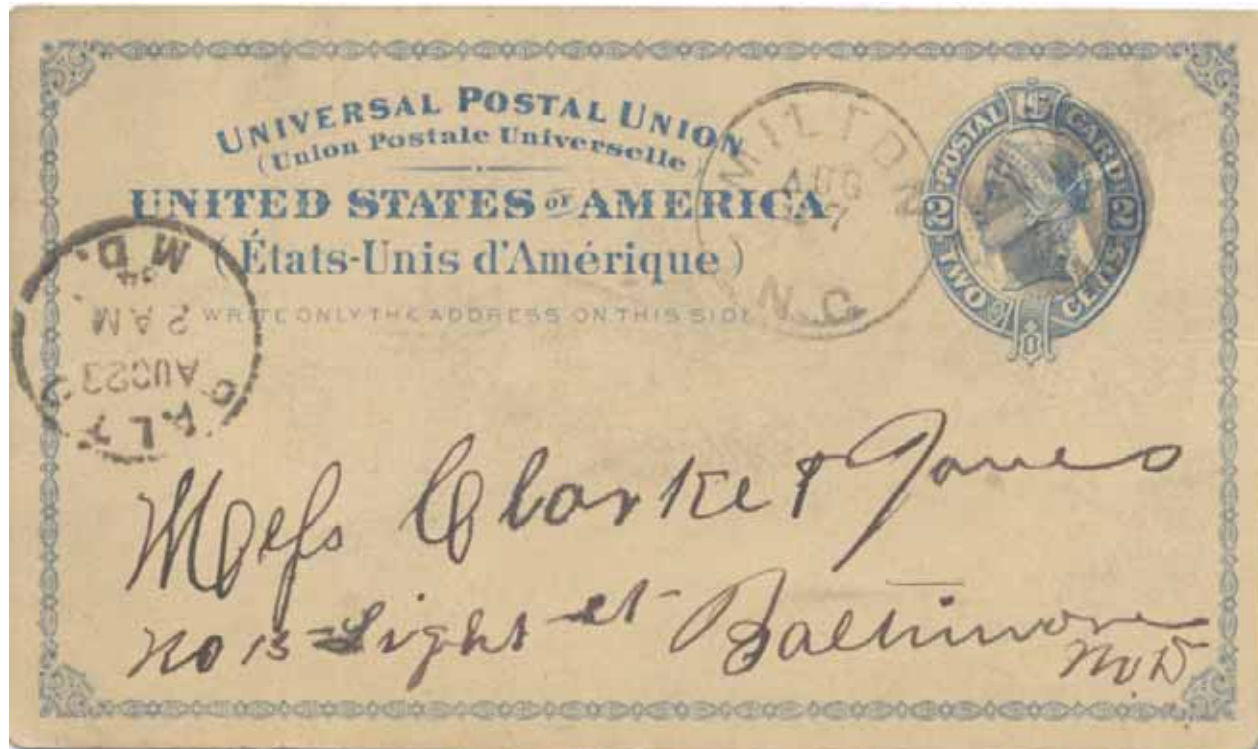 UNIVERSAL POSTAL UNION
(Union Postale Universelle)
UNITED STATES OF AMERICA
(États-Unis d'Amérique)
WRITE ONLY THE ADDRESS ON THIS SIDE
MILTON
AUG
N.C.
POSTAL CARD
2 2
TWO CENTS
M D.
94
2 AM
AUG 23
BALTO
Mess Clarke & Jones
No 13 Light st Baltimore
M.D